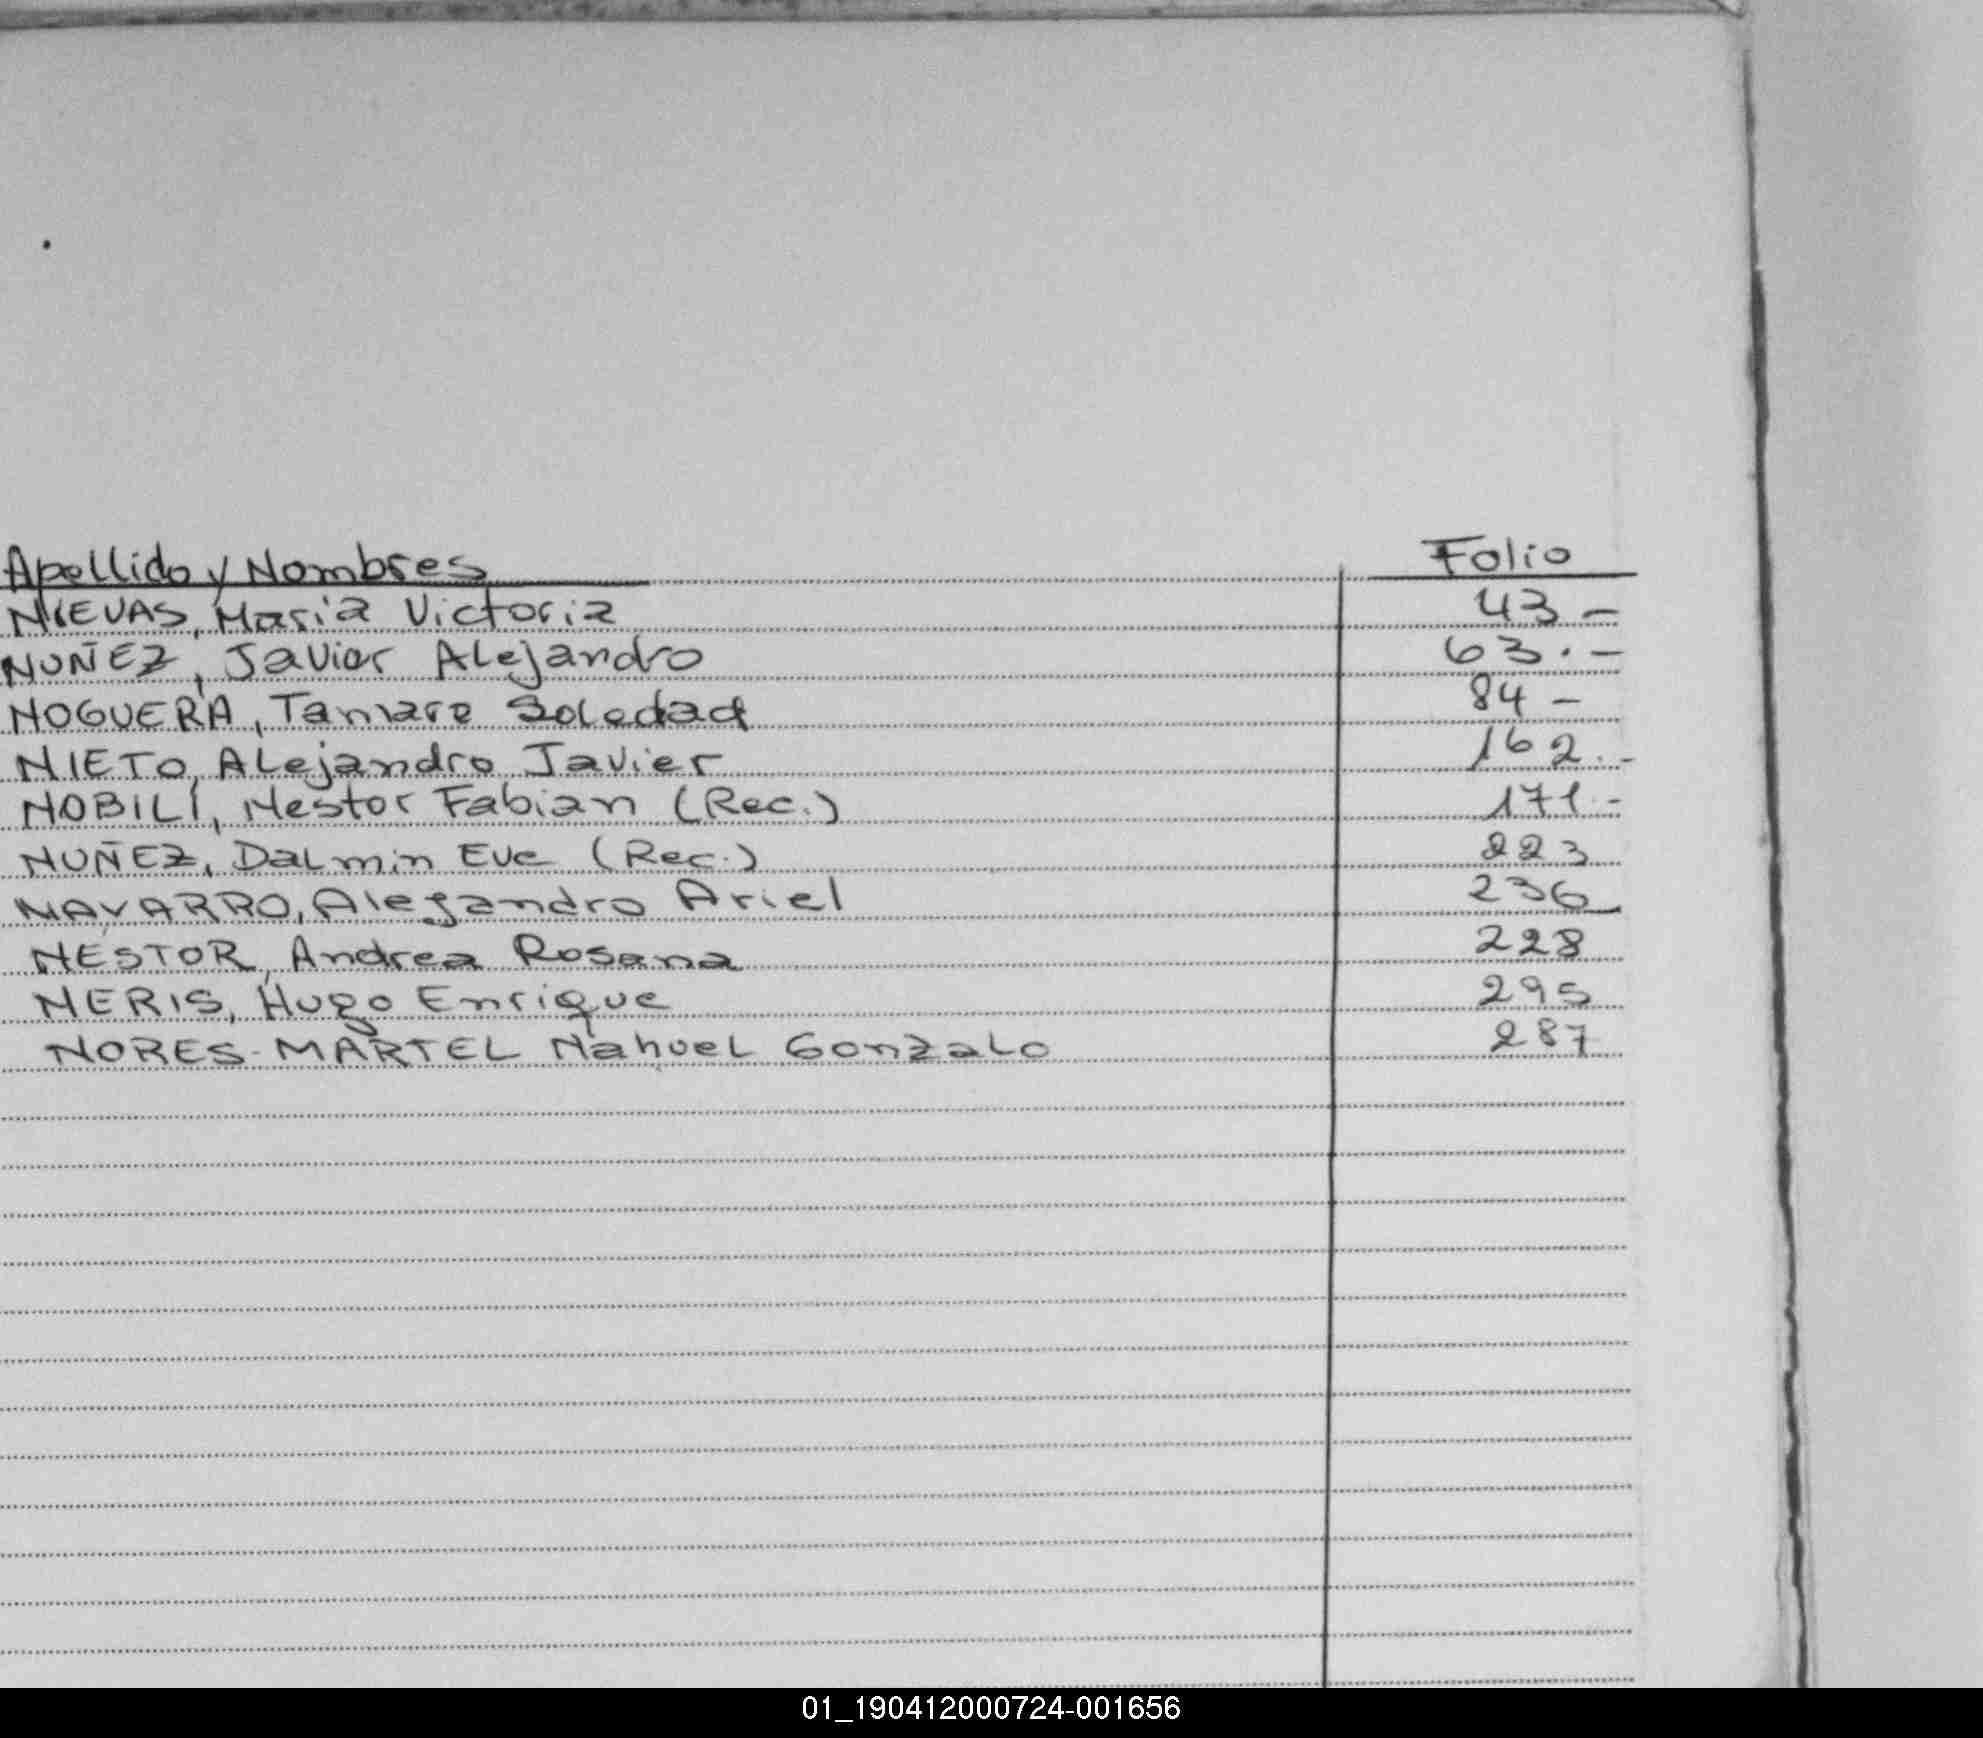 Apellido y Nombres Folio
NIEVAS, María Victoria 43.-
NUÑEZ, Javier Alejandro 63.-
NOGUERA, Tamara Soledad 84-
NIETO, Alejandro Javier 162.-
NOBILI, Nestor Fabian (Rec.) 171.-
NUÑEZ, Dalmin Eve (Rec.) 223
NAVARRO, Alejandro Ariel 236
NÉSTOR, Andrea Rosana 228
NERIS, Hugo Enrique 295
NORES-MARTEL Nahuel Gonzalo 287
01_190412000724-001656